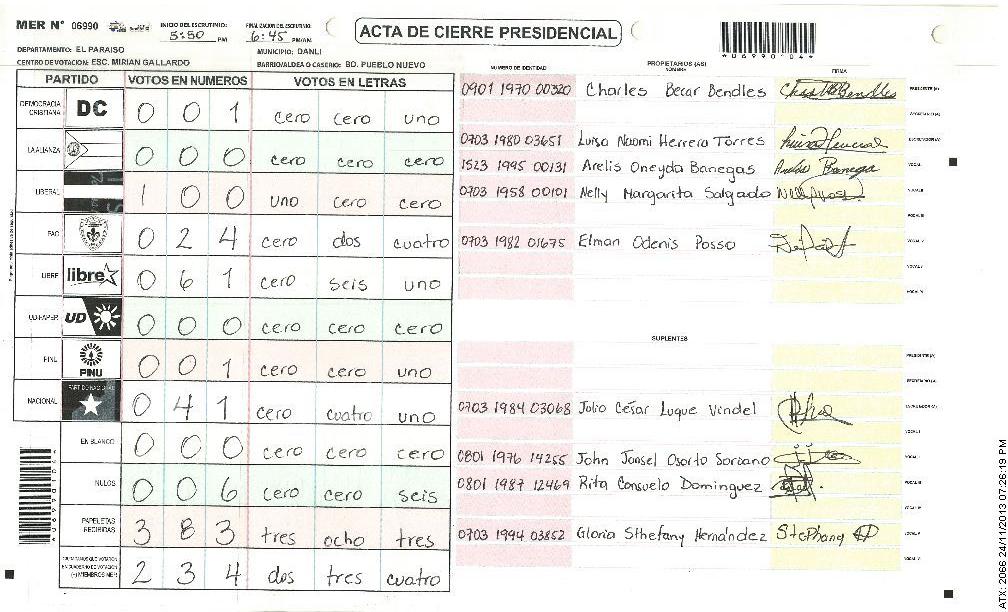 MER N° 06990
INICIO DEL ESCRUTINIO: 5:50 PM
FINALIZACION DEL ESCRUTINIO: 6:45 PM/AM
ACTA DE CIERRE PRESIDENCIAL
*06990104*
DEPARTAMENTO: EL PARAISO
MUNICIPIO: DANLI
CENTRO DE VOTACION: ESC. MIRIAN GALLARDO
BARRIO/ALDEA O CASERIO: BO. PUEBLO NUEVO
PARTIDO VOTOS EN NUMEROS VOTOS EN LETRAS
NUMERO DE IDENTIDAD PROPIETARIOS (AS) NOMBRE FIRMA
DEMOCRACIA CRISTIANA DC 0 0 1 cero cero uno
LA ALIANZA 0 0 0 cero cero cero
LIBERAL 1 0 0 uno cero cero
PAC 0 2 4 cero dos cuatro
LIBRE libre 0 6 1 cero seis uno
UD-FAPER UD 0 0 0 cero cero cero
PINU PINU 0 0 1 cero cero uno
NACIONAL PARTIDO NACIONAL 0 4 1 cero cuatro uno
EN BLANCO 0 0 0 cero cero cero
NULOS 0 0 6 cero cero seis
PAPELETAS RECIBIDAS 3 8 3 tres ocho tres
CIUDADANOS QUE VOTARON EN CUADERNO DE VOTACION (+) MIEMBROS MER 2 3 4 dos tres cuatro
0901 1970 00320 Charles Becar Bendles PRESIDENTE (A)
SECRETARIO (A)
0703 1980 03651 Luisa Naomi Herrera Torres ESCRUTADOR (A)
1523 1995 00131 Arelis Oneyda Banegas VOCAL I
0703 1958 00101 Nelly Margarita Salgado VOCAL II
VOCAL III
0703 1982 01675 Elman Odenis Posso VOCAL IV
VOCAL V
VOCAL VI
SUPLENTES
PRESIDENTE (A)
SECRETARIO (A)
0703 1984 03068 Julio César Luque Vindel ESCRUTADOR (A)
VOCAL I
0801 1976 14255 John Jansel Osorto Soriano
0801 1987 12469 Rita Consuelo Dominguez VOCAL III
0703 1994 03852 Gloria Sthefany Hernández Stephany VOCAL V
ATX: 2066 24/11/2013 07:26:19 PM